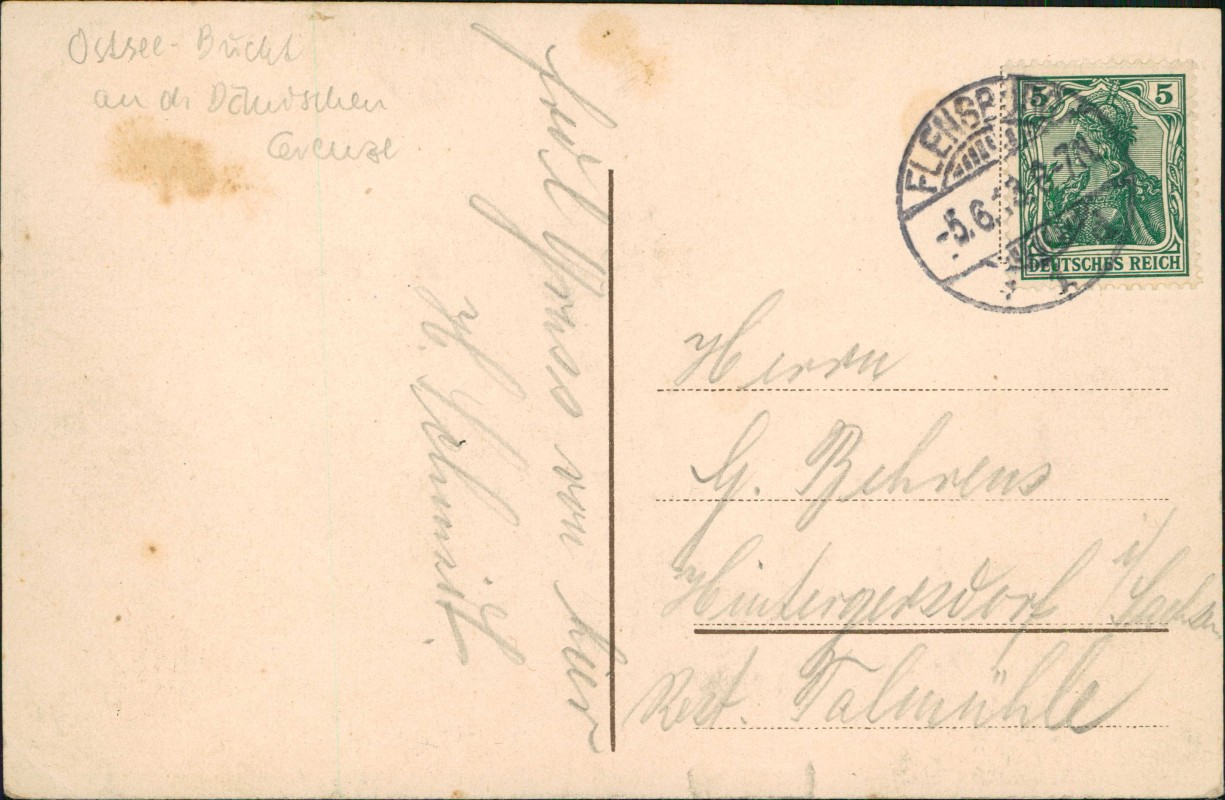 Ostsee-Bucht
an d. Dänischen
Grenze
Viel Grüße von hier
H. Schmidt
FLENSBURG
-5.6.
5 5
DEUTSCHES REICH
Herrn
G. Behrens
Hintergersdorf i/Sachsen
Rest. Talmühle